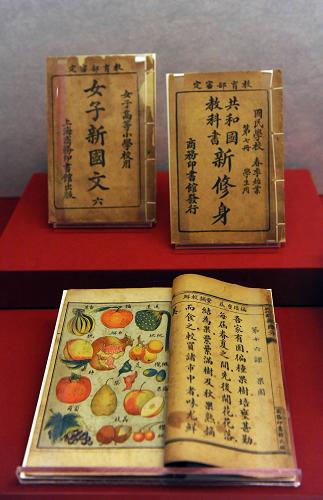 教育部審定
女子高等小學校用
女子新國文
六
上海商務印書館出版
教育部審定
國民學校 春季始業
第七冊 學生用
共和國
教科書
新修身
商務印書館發行
第十六課 果園
吾家有園徧種果樹培壅甚勤
每屆春夏之間先後開花花落
結為果纍纍滿樹及秋果熟摘
而食之較買諸市中者味尤鮮
美